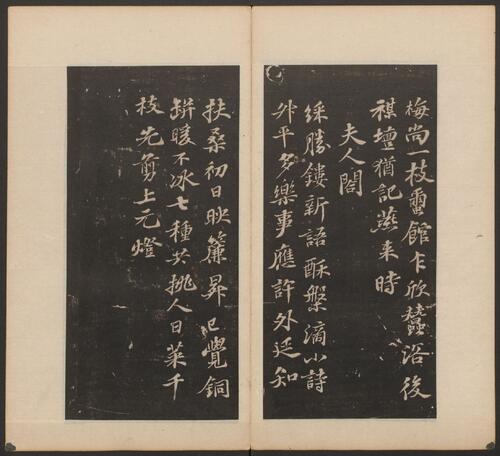 梅尚一枝雷館乍欣蠶浴後
禖壇猶記燕来時
夫人閤
綵勝鏤新語酥槃滴小詩
升平多樂事應許外廷知
扶桑初日映簾昇已覺銅
缾暖不冰七種共挑人日菜千
枝先剪上元燈